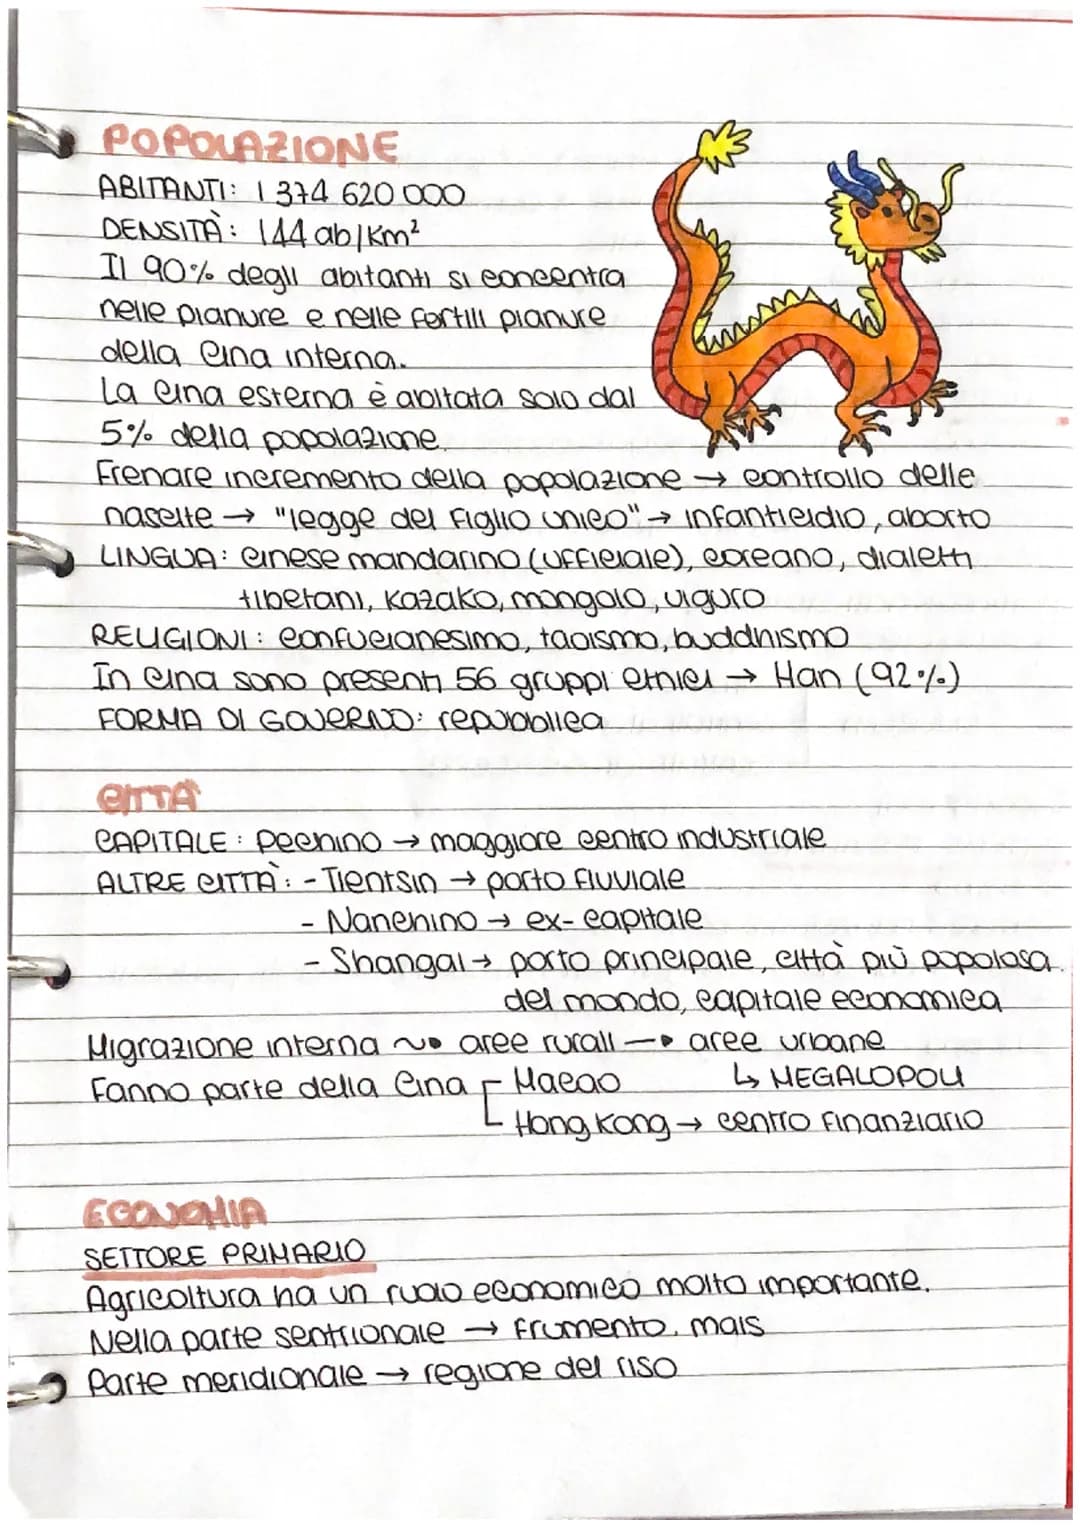 POPOLAZIONE
ABITANTI: 1 374 620 000
DENSITÀ: 144 ab/Km²
Il 90% degli abitanti si concentra
nelle pianure e nelle fertili pianure
della Cina interna.
La Cina esterna è abitata solo dal
5% della popolazione.
Frenare incremento della popolazione → controllo delle
nascite → "legge del figlio unico" → infanticidio, aborto
LINGUA: cinese mandarino (ufficiale), coreano, dialetti
tibetani, kazako, mongolo, uiguro
RELIGIONI: confucianesimo, taoismo, buddhismo
In Cina sono presenti 56 gruppi etnici → Han (92%)
FORMA DI GOVERNO: repubblica
CITTÀ
CAPITALE: Pechino → maggiore centro industriale
ALTRE CITTÀ: - Tientsin → porto fluviale
- Nanchino → ex-capitale
- Shangai → porto principale, città più popolosa
del mondo, capitale economica
Migrazione interna ~• aree rurali → aree urbane
↳ MEGALOPOLI
Fanno parte della Cina ┌ Macao
└ Hong Kong → centro finanziario
ECONOMIA
SETTORE PRIMARIO
Agricoltura ha un ruolo economico molto importante.
Nella parte sentrionale → frumento, mais
Parte meridionale → regione del riso